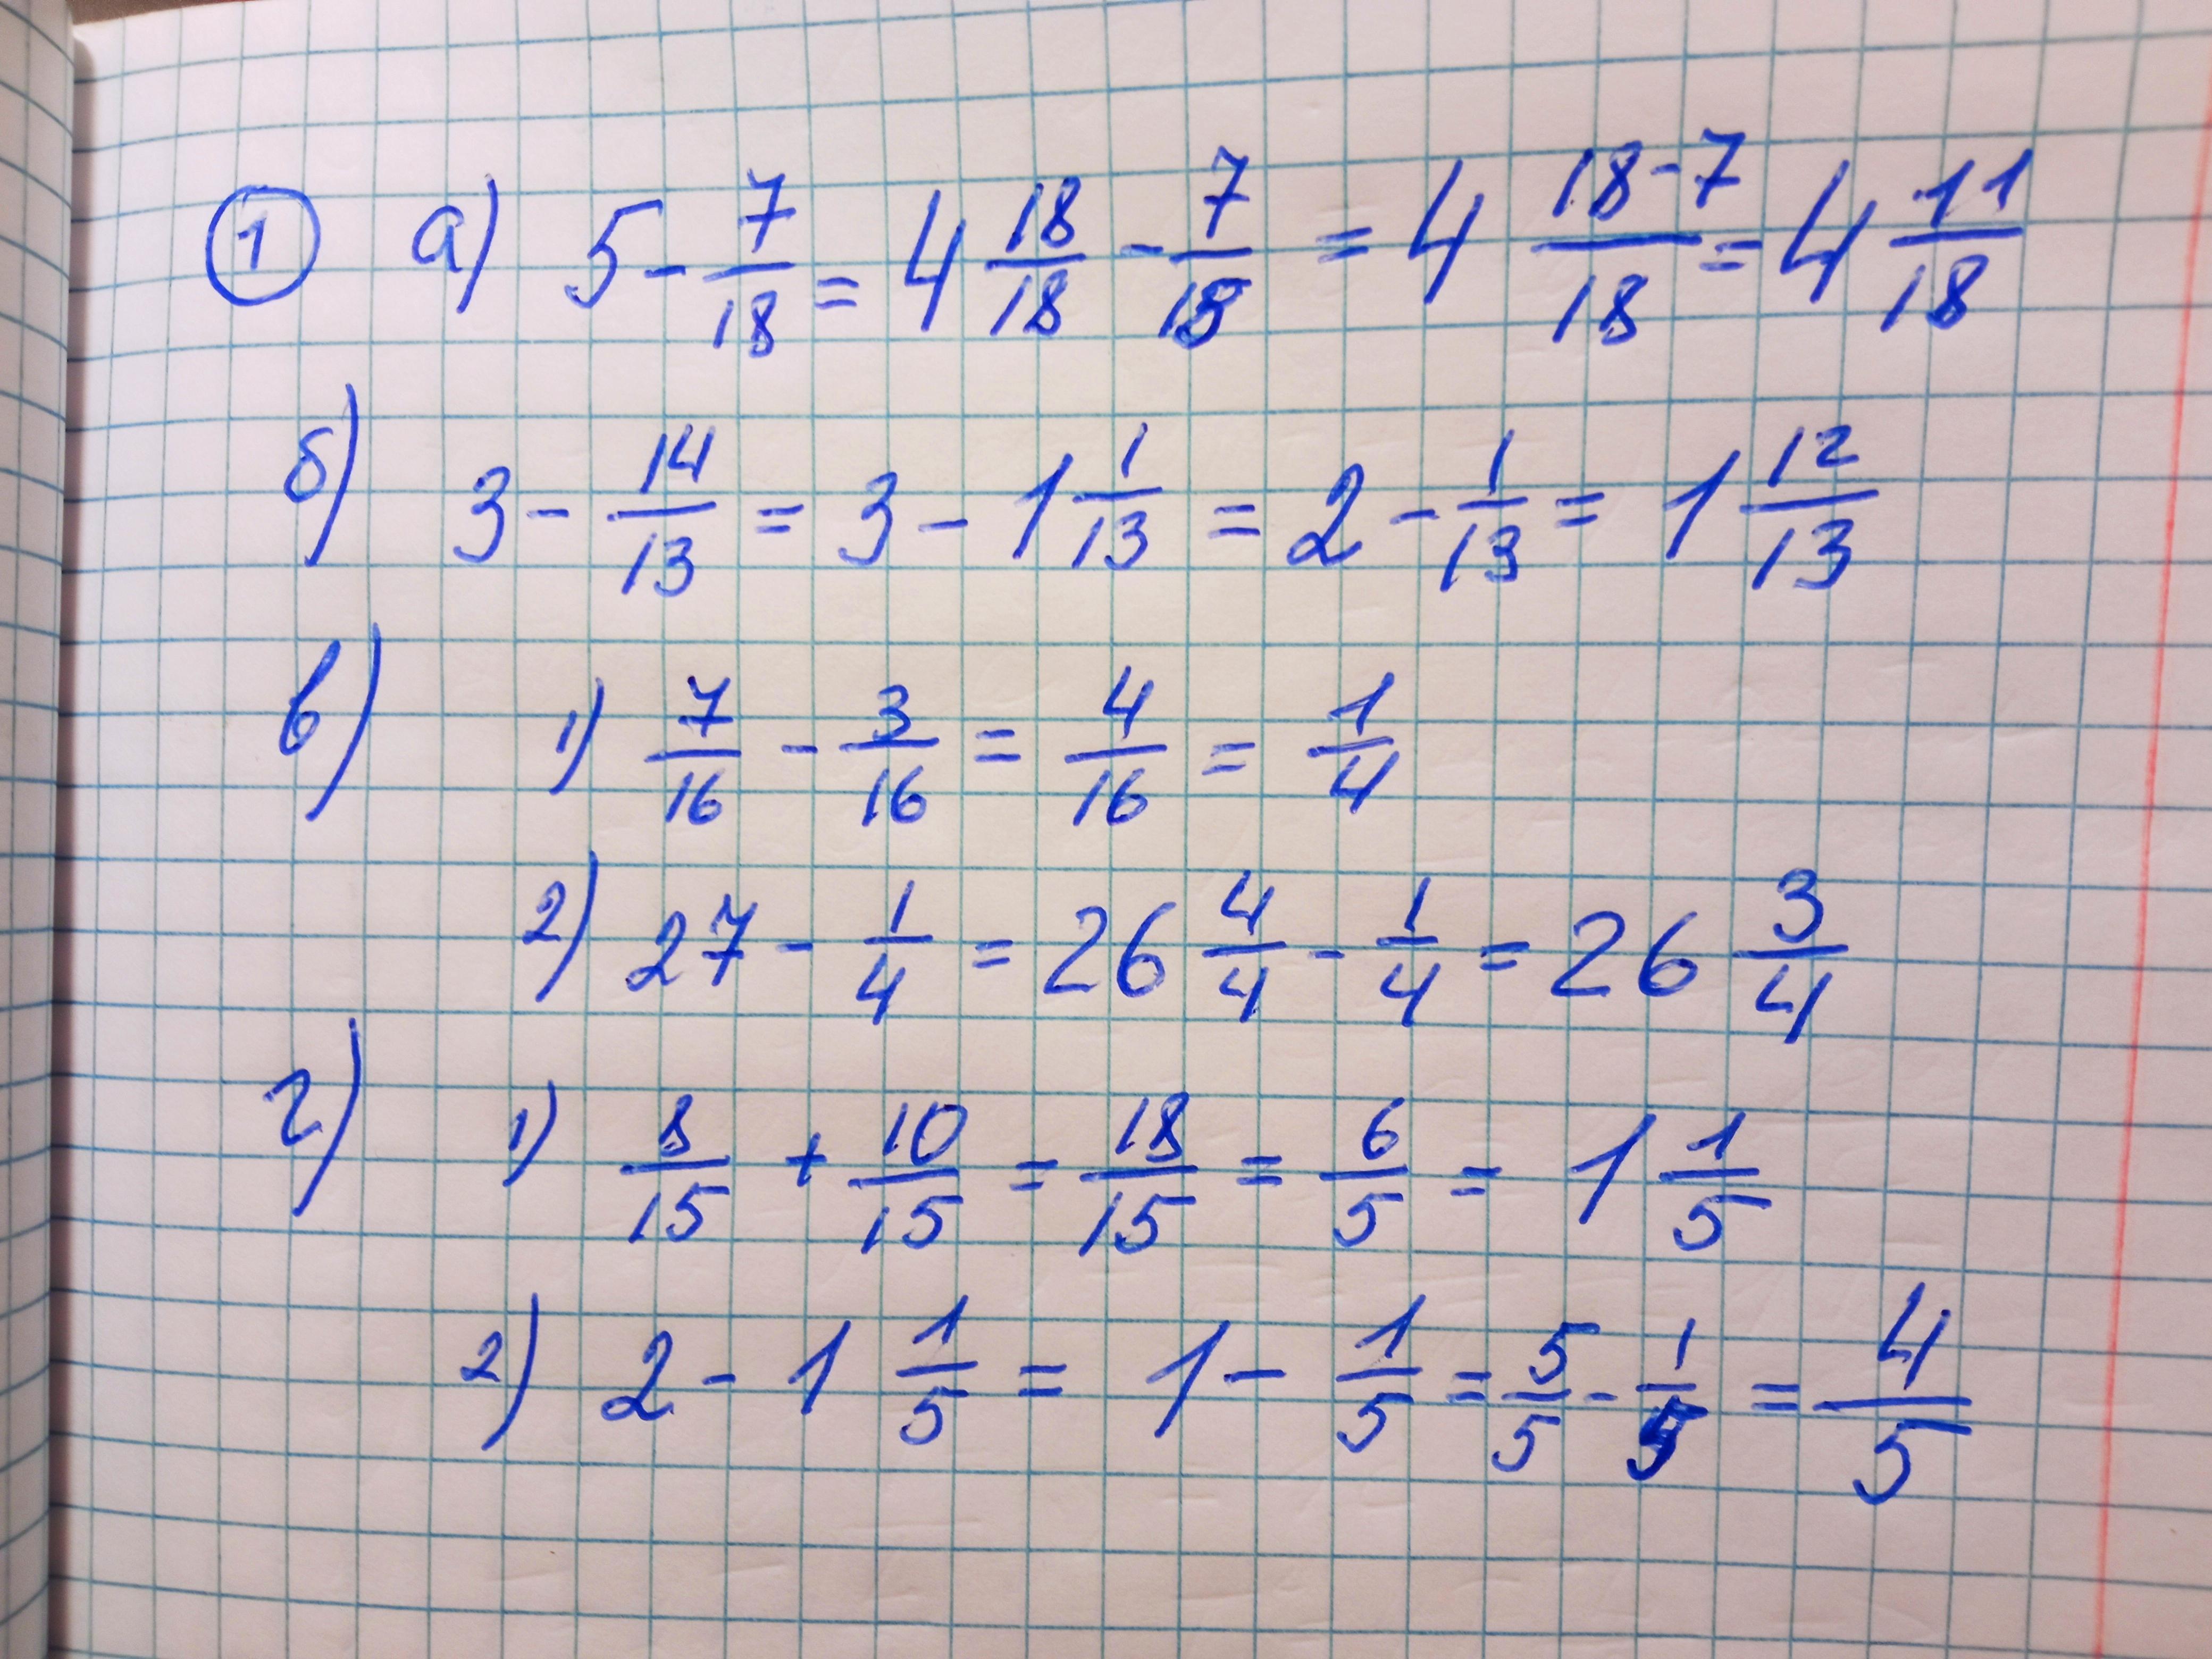 1 а) 5 - 7/18 = 4 18/18 - 7/18 = 4 18-7/18 = 4 11/18
б) 3 - 14/13 = 3 - 1 1/13 = 2 - 1/13 = 1 12/13
в) 1) 7/16 - 3/16 = 4/16 = 1/4
2) 27 - 1/4 = 26 4/4 - 1/4 = 26 3/4
г) 1) 8/15 + 10/15 = 18/15 = 6/5 = 1 1/5
2) 2 - 1 1/5 = 1 - 1/5 = 5/5 - 1/5 = 4/5